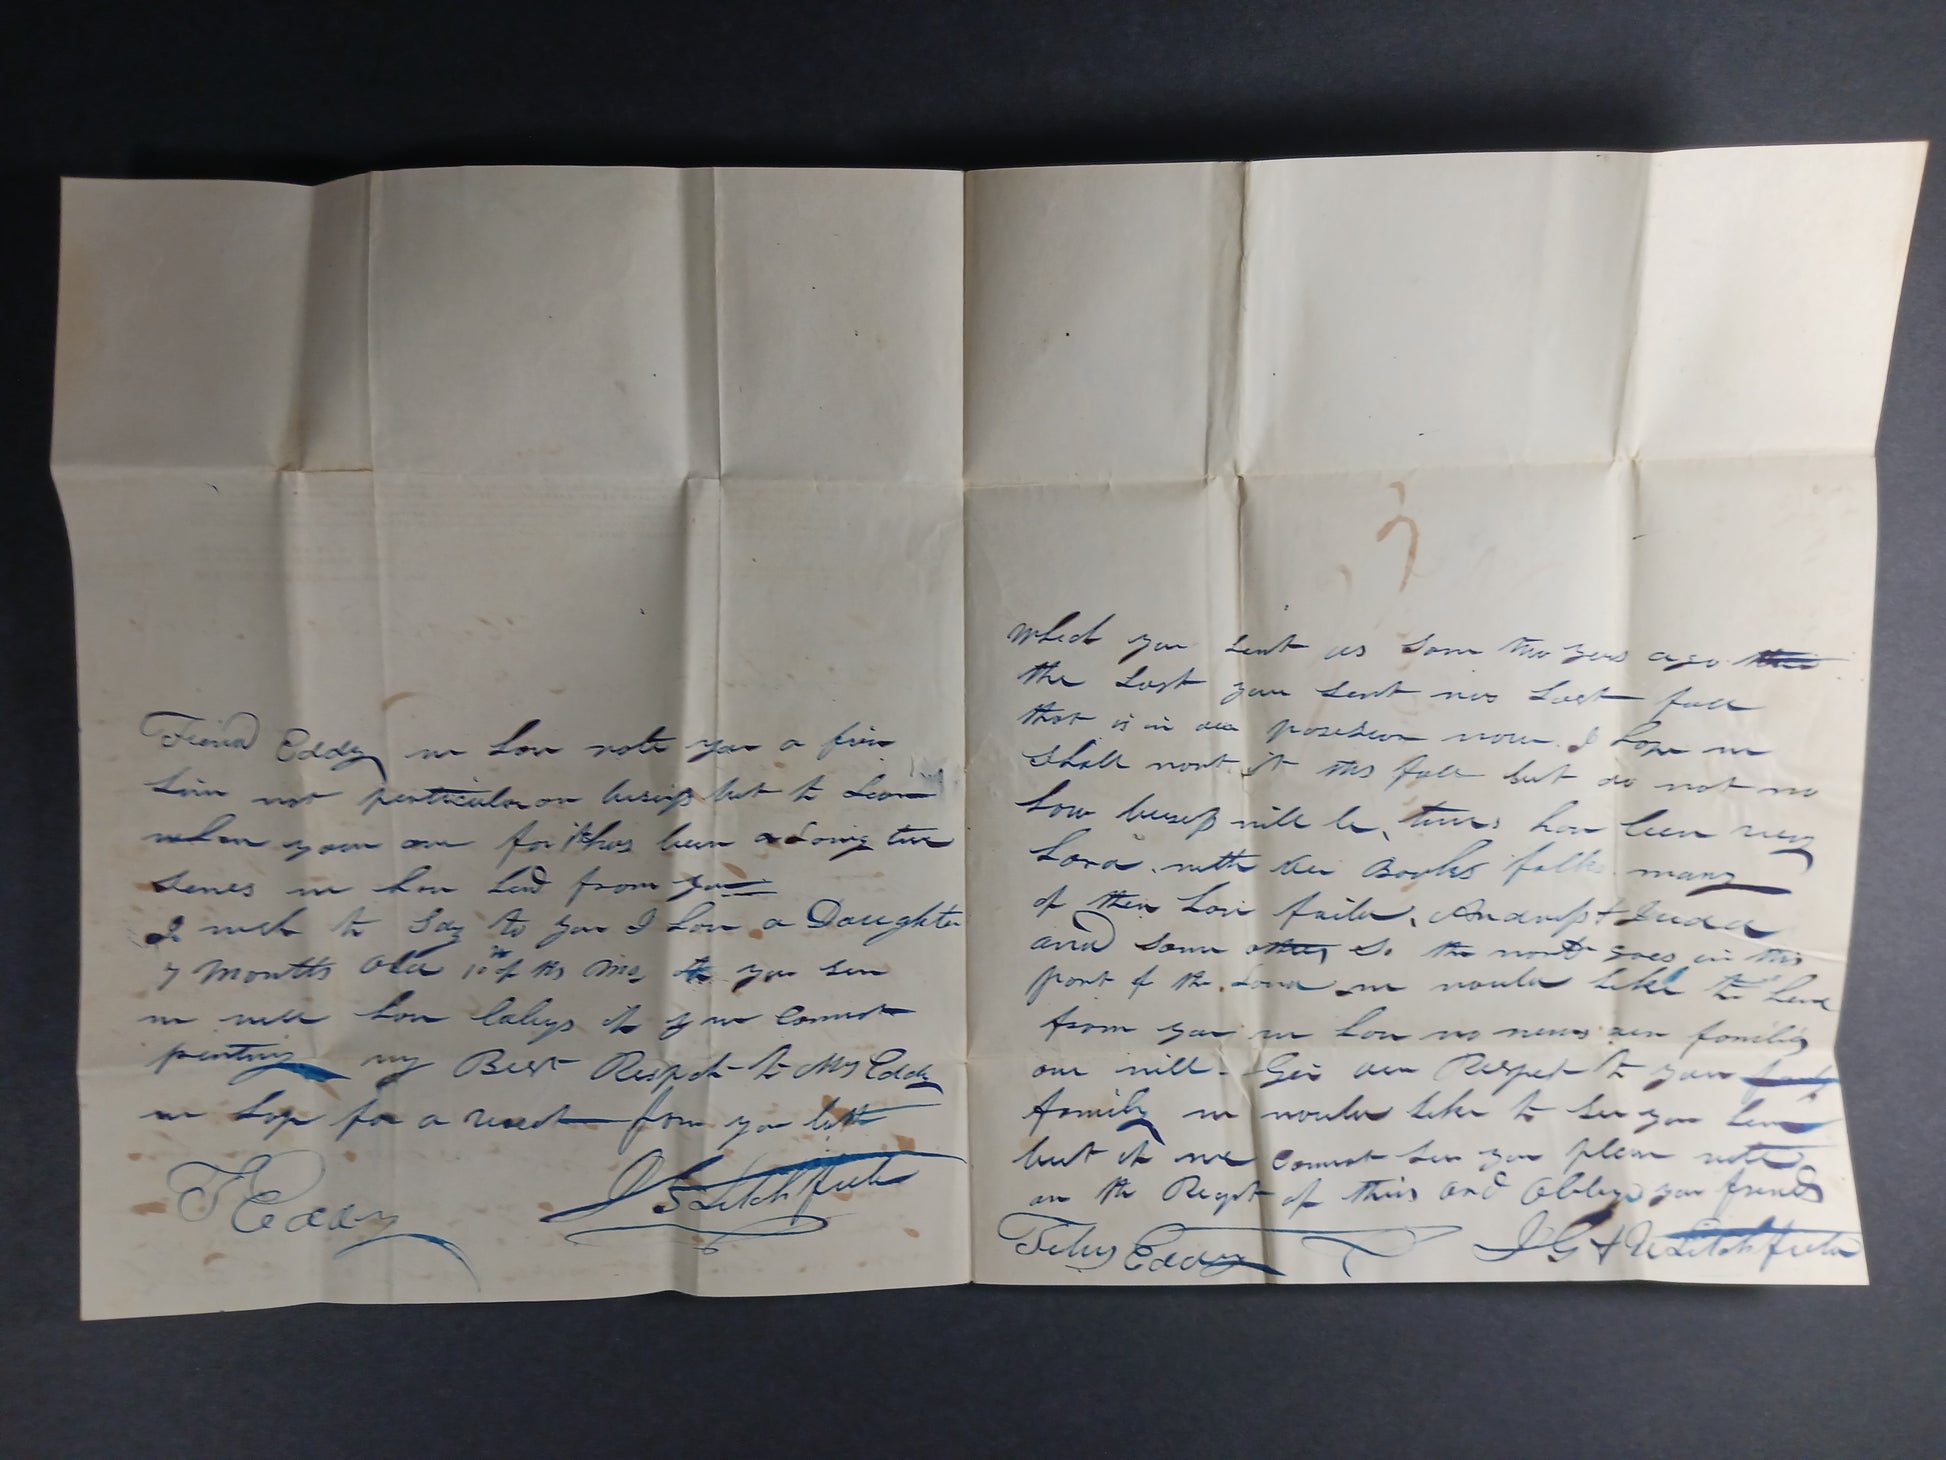 Friend Eddy we hav rote you a few
Lins not particular on busness but to Learn
whar you are for it has been a Long time
senes we hav herd from you
I wish to Say to you I hav a Daughter
7 Months Old 10th of this Mo, you see
we will hav babeys if you cannot
my Best Respect to Mrs Eddy
we hop for a from you both
T Eddy J S Litchfield
which you sent us som two years ago
the Last you sent was Last fall
that is in our posesion now. I hope we
Shall it this fall but do not no
how busness will be, times hav been very
hard. with the Books folks many
of them hav faild, Andruss & Judd
and some others So the world goes in this
part of the Land we would like to hear
from you we hav no news our familys
are well. Giv our Respect to your
family we would like to see you here
but if we cannot see you pleas rite
on the Recpt of this and Oblige your friends
Titus Eddy J G & Litchfield